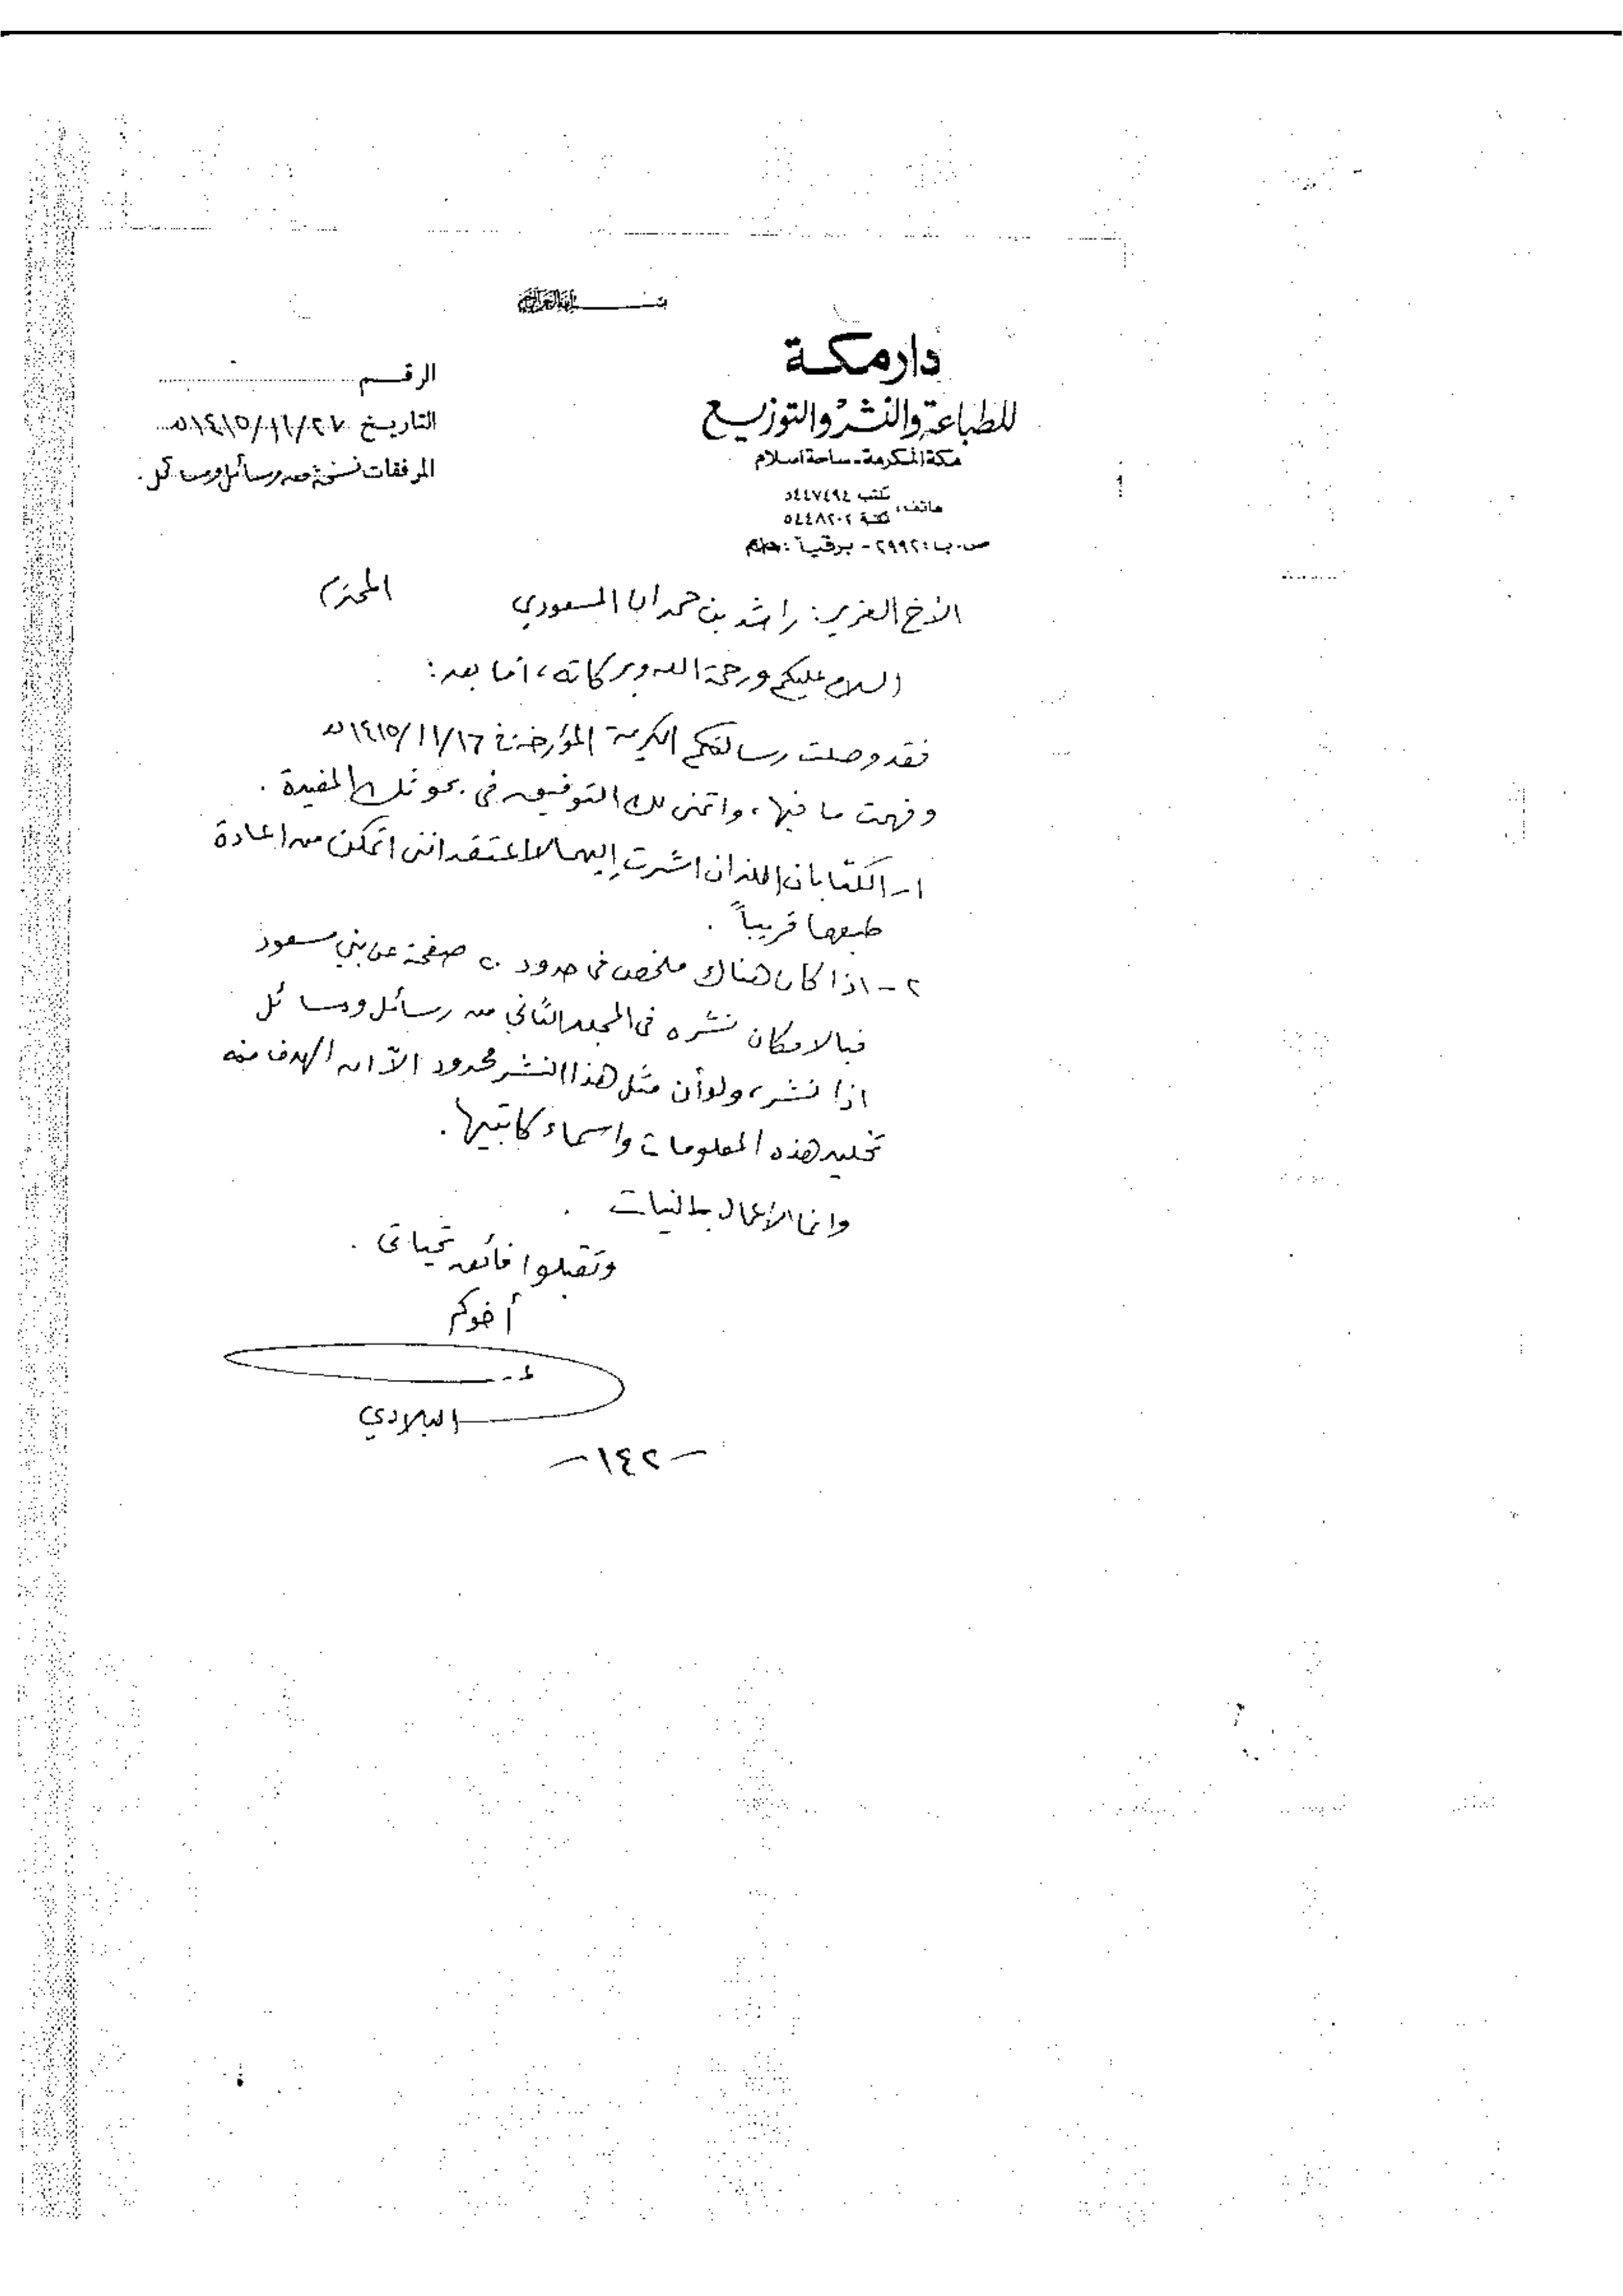 بسم الله الرحمن الرحيم
دار مكة
للطباعة والنشر والتوزيع
مكة المكرمة - ساحة اسلام
هاتف: مكتب ٥٤٤٧٤٩٤
مكتبة ٥٤٤٨٢٠٢
ص.ب: ٢٩٩٢ - برقياً:
الرقم
التاريخ ٢٧/١١/١٤١٥هـ
المرفقات نسخة من رسائل ومسائل.
الأخ العزيز: راشد بن حمدان المسعودي المحترم
السلام عليكم ورحمة الله وبركاته، أما بعد:
فقد وصلت رسالتكم الكريمة المؤرخة في ١٦/١١/١٤١٥هـ
وفهمت ما فيها، واتمنى لك التوفيق في بحوثك المفيدة.
١- الكتابان اللذان اشرت إليهما لا اعتقد انني اتمكن من اعادة
طبعها قريباً.
٢- اذا كان هناك ملخص في حدود ٢٠ صفحة عن بني مسعود
فبالامكان نشره في المجلد الثاني من رسائل ومسائل
اذا نشر، ولو أن مثل هذا النشر محدود الاّ ان الهدف منه
تخليد هذه المعلومات واسماء كاتبيها.
وانما الأعمال بالنيات.
وتقبلوا فائق تحياتي.
أخوكم
البلادي
-١٤٢-